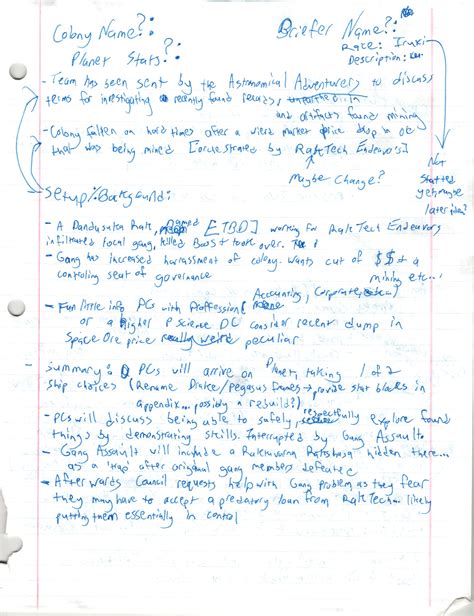 Colony Name?:
Briefer Name?:
Race: Iruki
Planet Stats?:
Description:
- Team has been sent by the Astronomical Adventurers to discuss
terms for investigating recently found records,
and artifacts found mining
- Colony fallen on hard times after a wierd market price drop in ore
that was being mined [orchestrated by RakeTech Endeavors]
Maybe Change?
Not
Started
yet, maybe
later idea?
Setup/Background:
- A Dandasuka Rake, Named [TBD] working for RakeTech Endeavors
infiltrated local gang, killed Boss + took over.
- Gang has increased harrassment of colony. Wants cut of $$ + a
controling seat of governance
mining etc...
- Fun little info PCs with Profession (Accounting, Corporate,
or a higher P science DC consider recent dump in
Space Ore price really weird peculiar
- Summary: PCs will arrive on Planet, taking 1 of 2
ship choices (Rename Drake/Pegasus frames → provide stat blocks in
appendix... possibly a rebuild?)
- PCs will discuss being able to safely, respectfully explore found
things by demonstrating skills. Interrupted by Gang Assault.
- Gang Assault will include a Raktavarna Rakshasa hidden there...
as a after original gang members defeated
- Afterwards Council requests help with Gang problem as they fear
they may have to accept a predatory loan from RakeTech - likely
putting them essentially in control